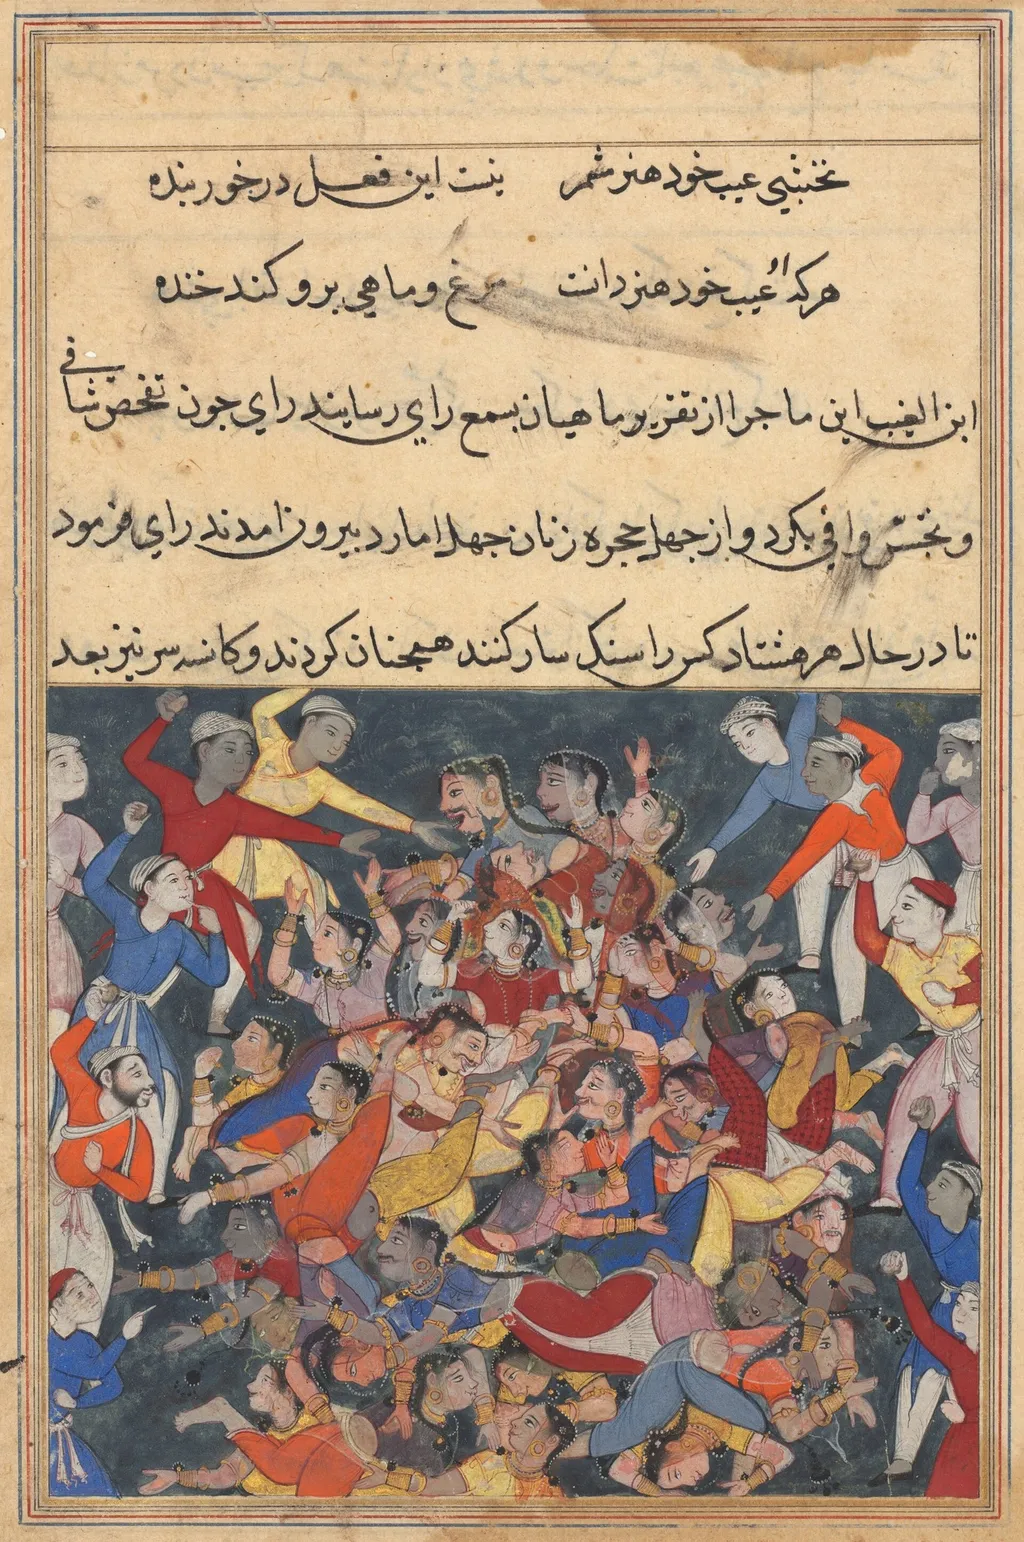 نخشبی عیب خود هنر شمر نیست این فعل درخور بنده
هرکه او عیب خود هنر دانست مرغ و ماهی برو کنند خنده
ابن الغیب این ماجرا از تقریر ماهیان بسمع رای رسانید رای چون تفحص شافی
و تجسس وافی بکرد و از چهل حجره زنان چهل امارد بیرون آمدند رای فرمود
تا در حال هر هشتاد کس را سنک سار کنند همچنان کردند و کاسه سر نیز بعد